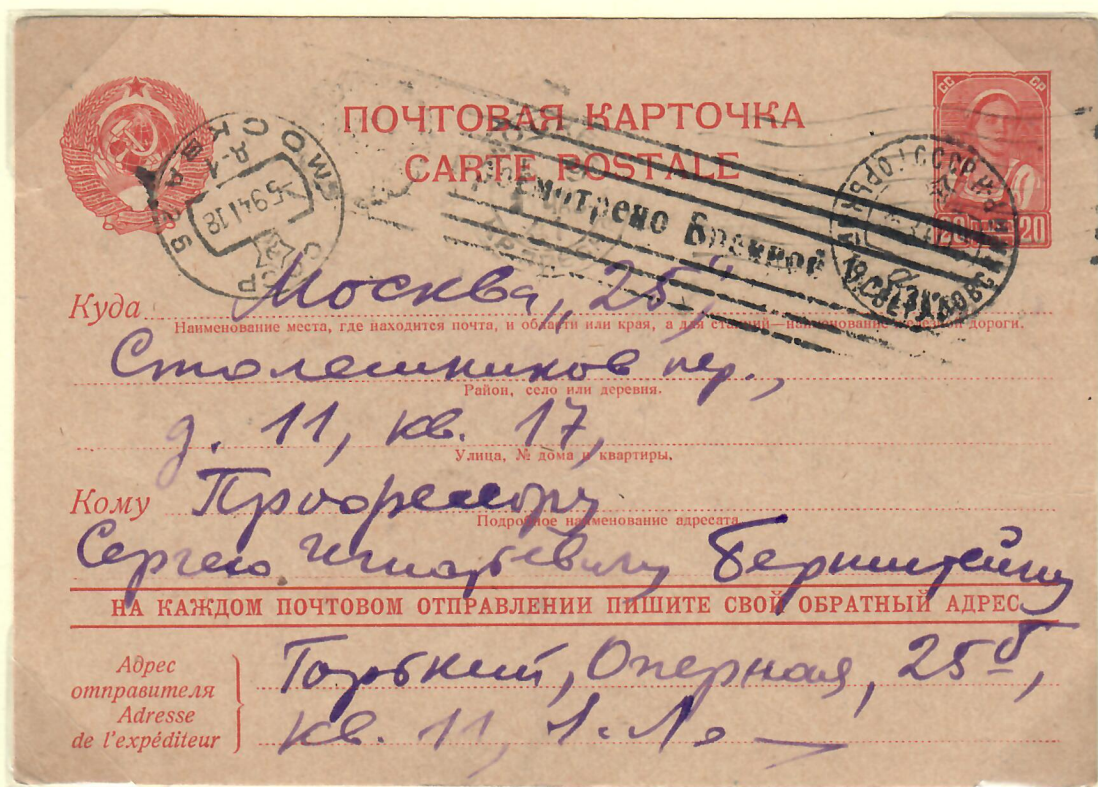 ПОЧТОВАЯ КАРТОЧКА
CARTE POSTALE
СС СР
20 20
МОСКВА 25
Д-1
5 9 41 18
СССР
Просмотрено Военной
Куда Москва, 25,
Наименование места, где находится почта, и области или края, а для станций—наименование железной дороги.
Столешников пер.,
Район, село или деревня.
д. 11, кв. 17,
Улица, № дома и квартиры.
Кому Профессору
Подробное наименование адресата
Сергею Игнатьевичу Бернштейну
НА КАЖДОМ ПОЧТОВОМ ОТПРАВЛЕНИИ ПИШИТЕ СВОЙ ОБРАТНЫЙ АДРЕС
Адрес отправителя
Adresse de l'expéditeur
Горький, Оперная, 25б,
кв. 11,